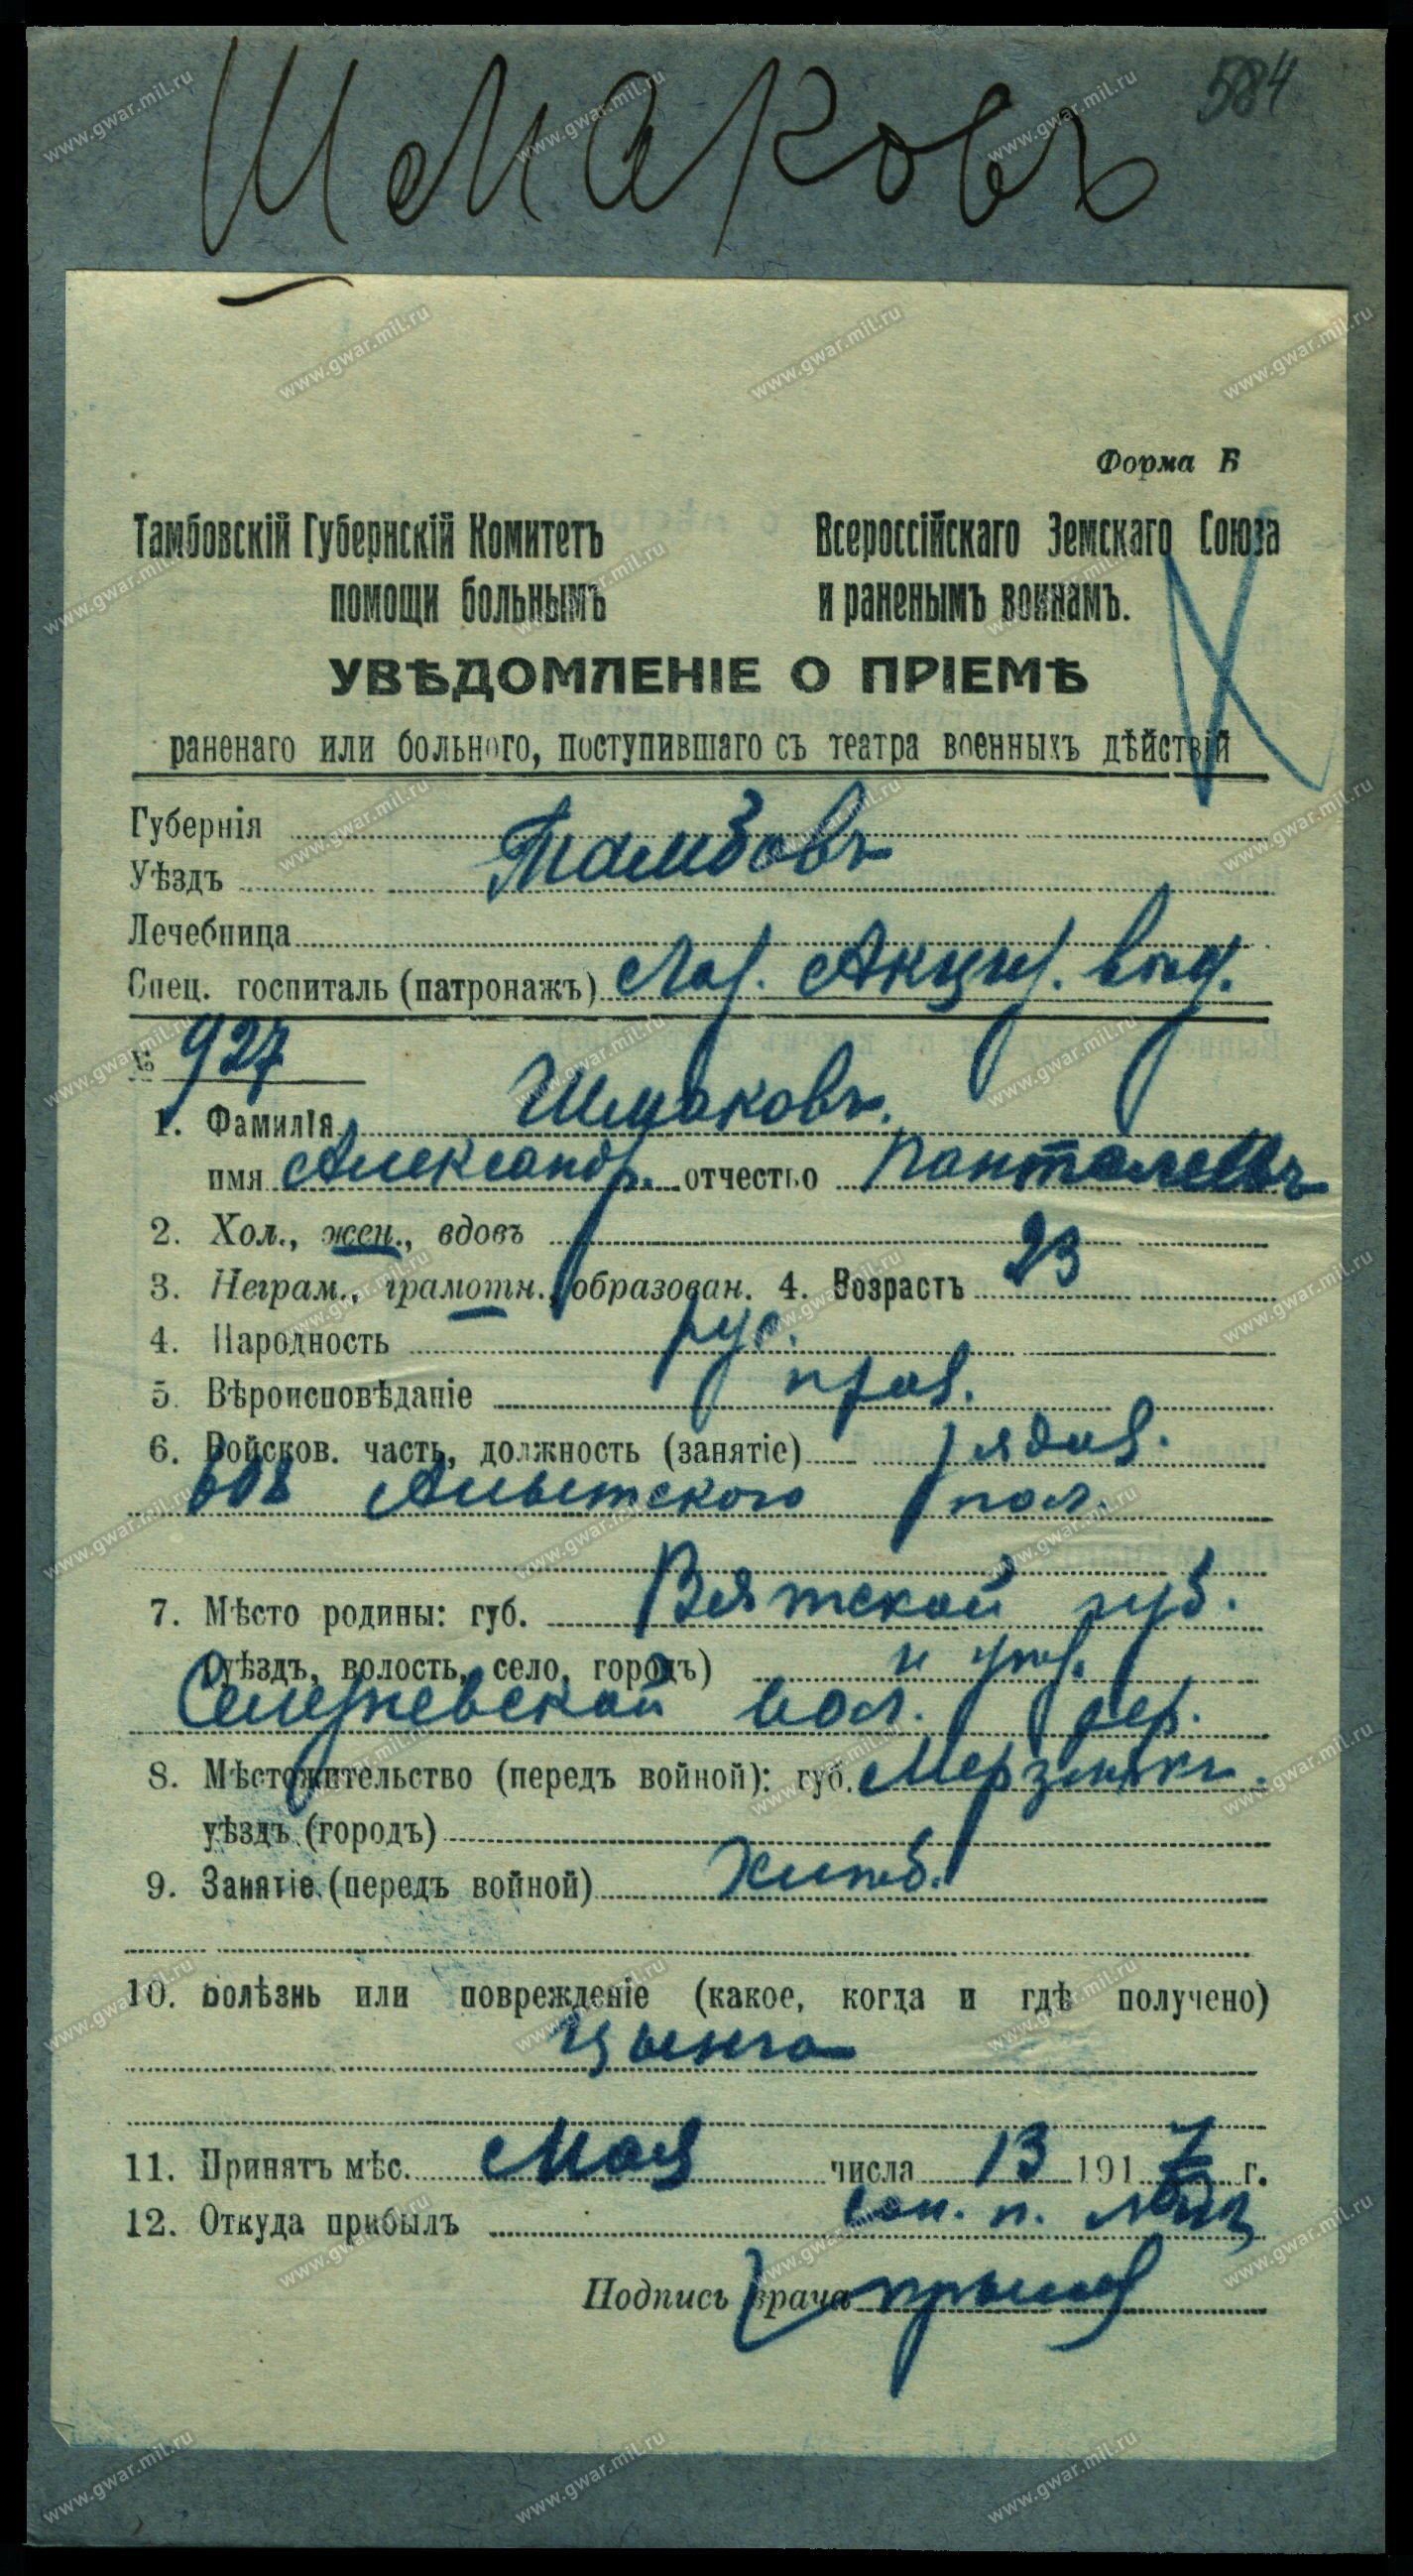 584
Шмаковъ
Форма Б
Тамбовскій Губернскій Комитетъ Всероссійскаго Земскаго Союза
помощи больнымъ и раненымъ воинамъ.
УВѢДОМЛЕНІЕ О ПРІЕМѢ
раненаго или больного, поступившаго съ театра военныхъ дѣйствій
Губернія
Уѣздъ Тамбовъ
Лечебница
Спец. госпиталь (патронажъ) Лаз. Акциз. вѣд.
№ 927
1. Фамилія Шмаковъ.
имя Александр. отчество Панталеевъ
2. Хол., жен., вдовъ
3. Неграм., грамотн., образован. 4. Возрастъ 23
4. Народность рус.
5. Вѣроисповѣданіе прав.
6. Войсков. часть, должность (занятіе) рядов.
608 Алытского пол.
7. Мѣсто родины: губ. Вятской губ.
(уѣздъ, волость, село, городъ) и уѣз.
вол. дер.
8. Мѣстожительство (передъ войной): губ. Мерзляки.
уѣздъ (городъ)
9. Занятіе (передъ войной) хлѣб.
10. Болѣзнь или поврежденіе (какое, когда и гдѣ получено)
Цынга
11. Принятъ мѣс. Мая числа 13 1917 г.
12. Откуда прибылъ сан. п.
Подпись врача
www.gwar.mil.ru